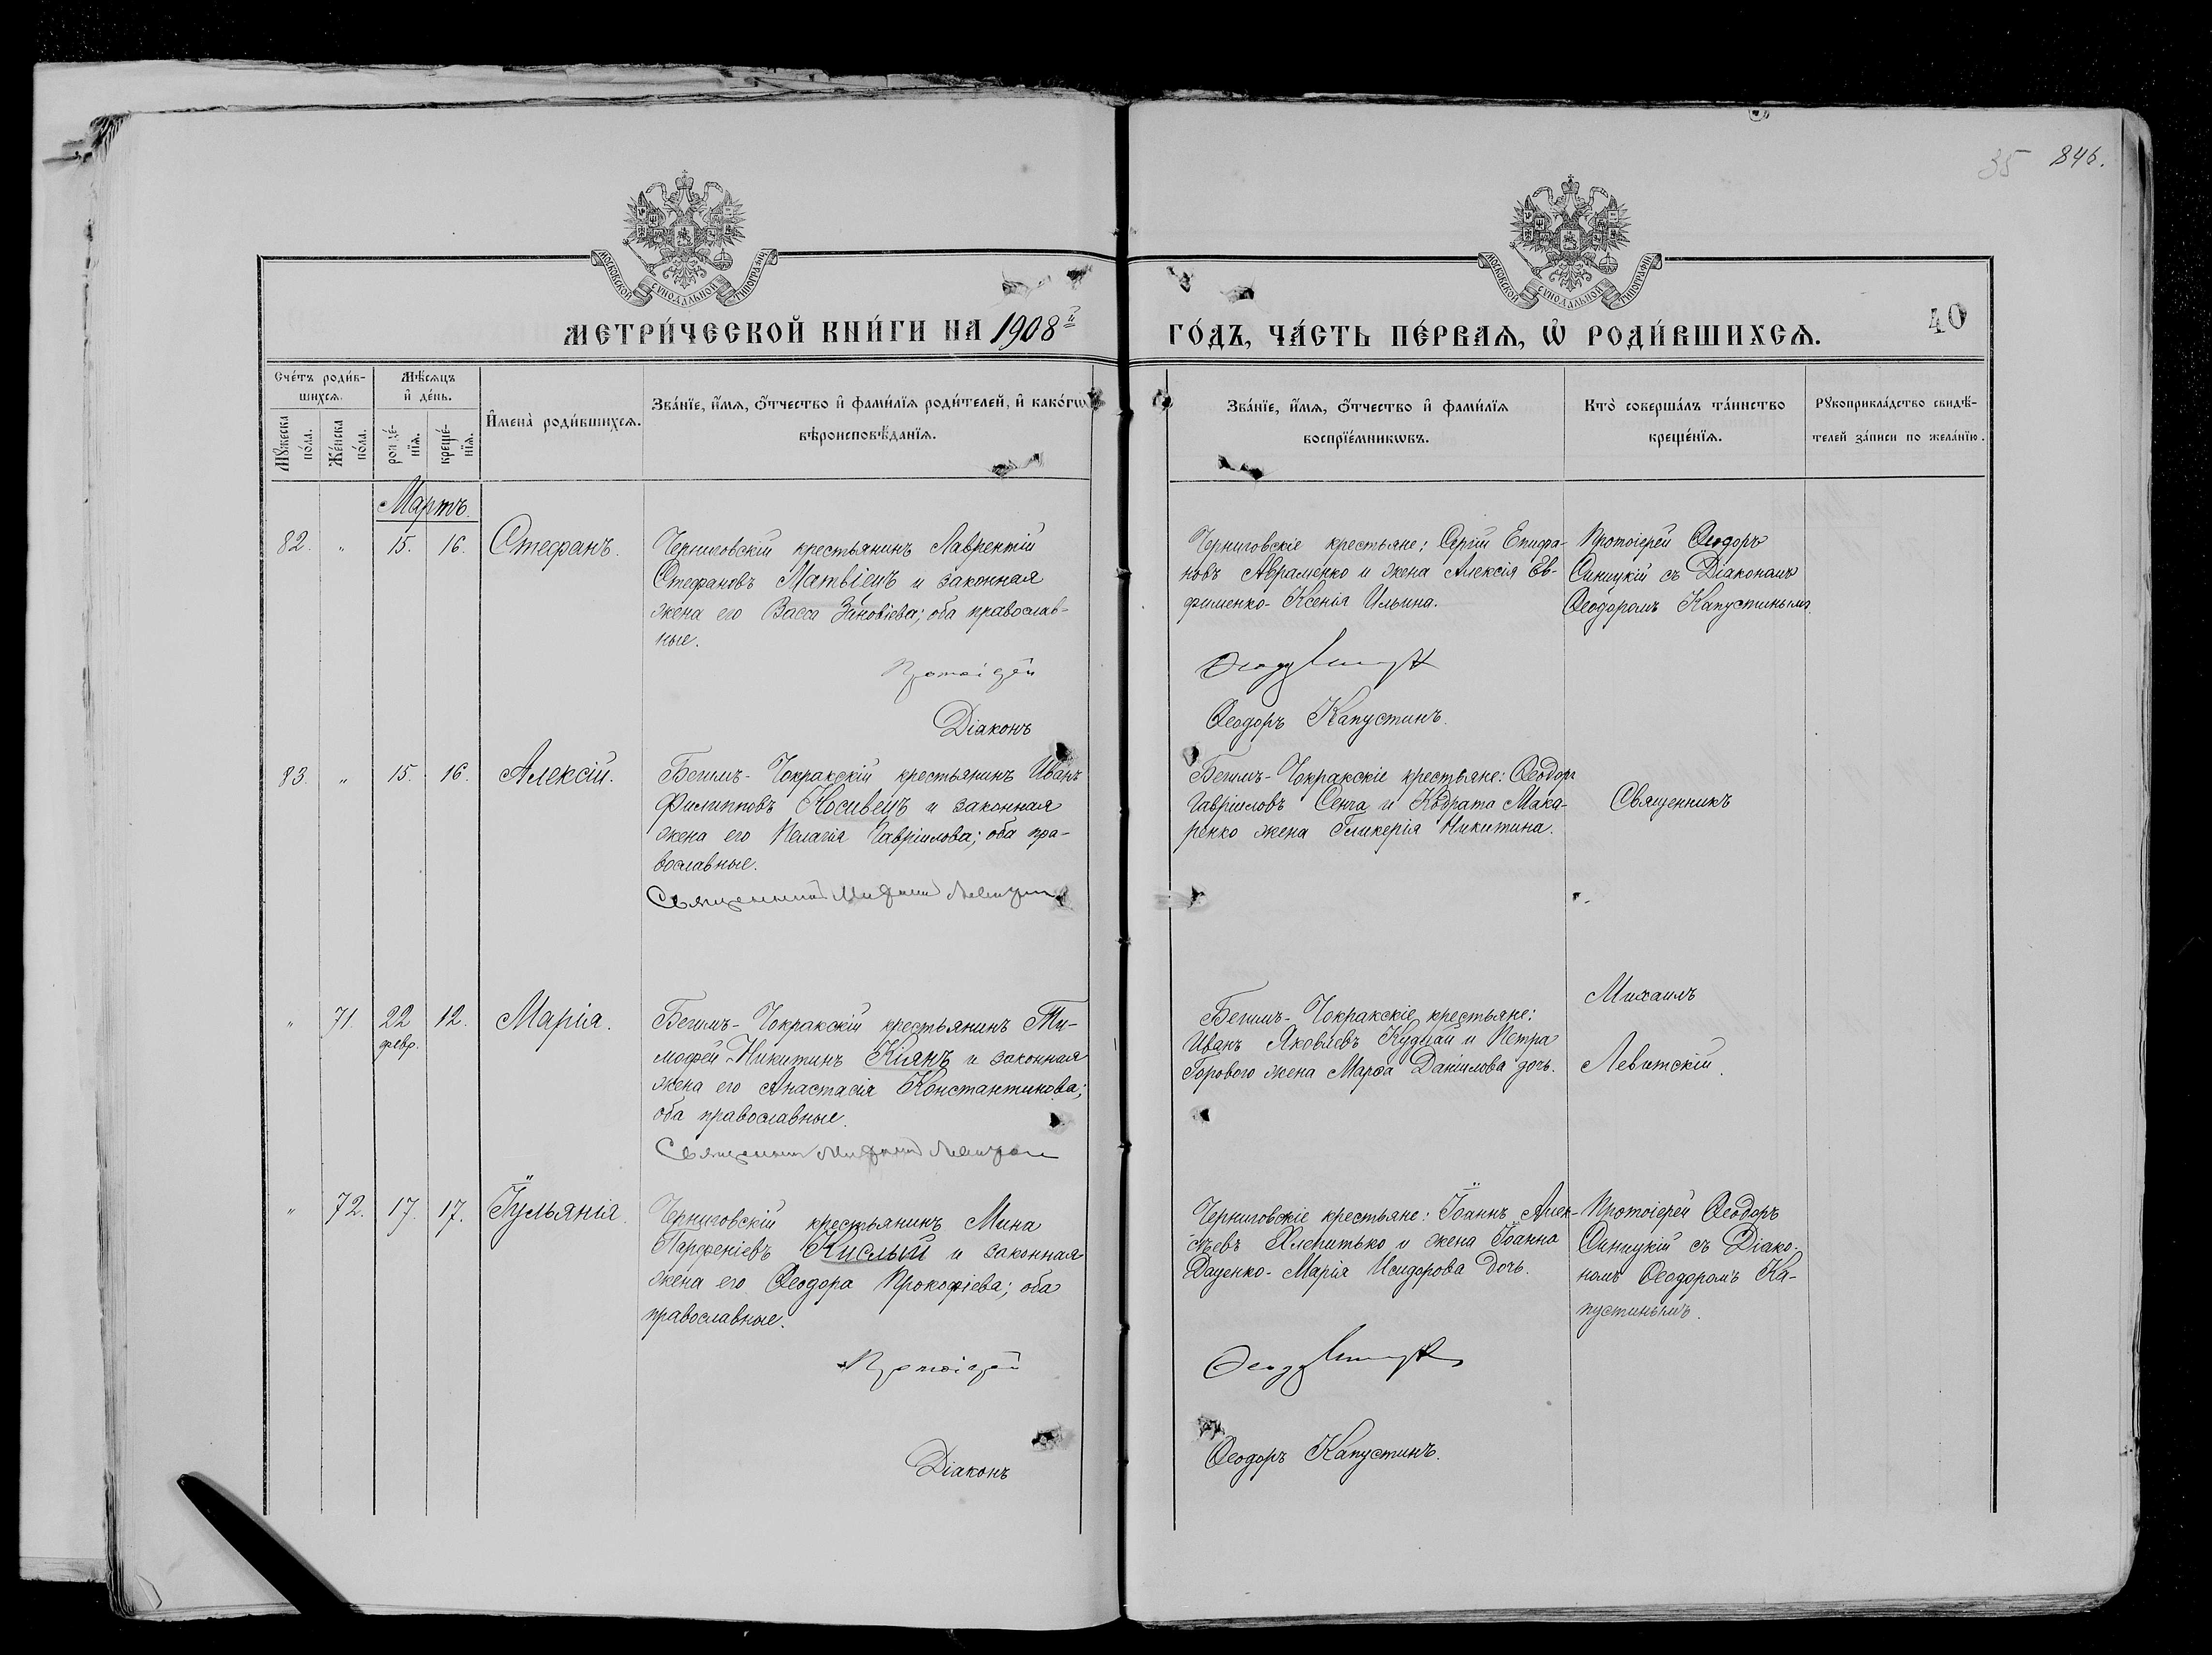 35 846.
МОСКОВСКОЙ СѴНОДАЛЬНОЙ ТИПОГРАФІИ
МОСКОВСКОЙ СѴНОДАЛЬНОЙ ТИПОГРАФІИ
МЕТРИ́ЧЕСКОЙ КНИ́ГИ НА 1908й
ГО́ДЪ, ЧА́СТЬ ПЕ́РВАЯ, Ѡ РОДИ́ВШИХСЯ.
40
Сче́тъ роди́в-
шихся.
Мужеска по́ла.
Же́нска по́ла.
Мѣ́сяцъ
и де́нь.
рожде́-
нія.
креще́-
нія.
Имена̀ роди́вшихся.
Зва́нїе, и́мя, о́тчество и фами́лїя роди́телей, и како́гѡ
вѣроисповѣ́данїя.
Зва́нїе, и́мя, о́тчество и фами́лїя
воспрїе́мникѡвъ.
Кто̀ соверша́лъ та́инство
креще́нїя.
Рукоприкла́дство свидѣ́-
телей за́писи по жела́нїю.
Мартъ.
82. " 15. 16. Стефанъ.
Черниговскій крестьянинъ Лаврентій
Стефановъ Матвіецъ и законная
жена его Васса Зиновіева; оба православ-
ные.
Протоіерей
Діаконъ
Черниговскіе крестьяне: Сергій Епифа-
новъ Авраменко и жена Алексія Ев-
фименко - Ксенія Ильина.
Ѳеодоръ Капустинъ.
Протоіерей Ѳеодоръ
Синицкій съ Діакономъ
Ѳеодоромъ Капустинымъ.
83. " 15. 16. Алексій.
Бегимъ-Чокракскій крестьянинъ Иванъ
Филипповъ Носивецъ и законная
жена его Пелагія Гавріилова; оба пра-
вославные.
Священникъ Михаилъ Левитскій
Бегимъ-Чокракскіе крестьяне: Ѳеодоръ
Гавріиловъ Сенча и Кодрата Мака-
ренко жена Гликерія Никитина.
Священникъ
" 71. 22 февр. 12. Марія.
Бегимъ-Чокракскій крестьянинъ Ти-
мофей Никитинъ Кіянъ и законная
жена его Анастасія Константинова;
оба православные.
Священникъ Михаилъ Левитскій
Бегимъ-Чокракскіе крестьяне:
Иванъ Яковлевъ Кудлай и Петра
Горового жена Марѳа Даніилова дочь.
Михаилъ
Левитскій.
" 72. 17. 17. Іульянія.
Черниговскій крестьянинъ Мина
Парфеніевъ Кислый и законная
жена его Ѳеодора Прокофіева; оба
православные.
Протоіерей
Діаконъ
Черниговскіе крестьяне: Іоаннъ Алек-
сѣевъ Хлепитько и жена Іоанна
Даценко - Марія Исидорова дочь.
Ѳеодоръ Капустинъ.
Протоіерей Ѳеодоръ
Синицкій съ Діако-
номъ Ѳеодоромъ Ка-
пустинымъ.